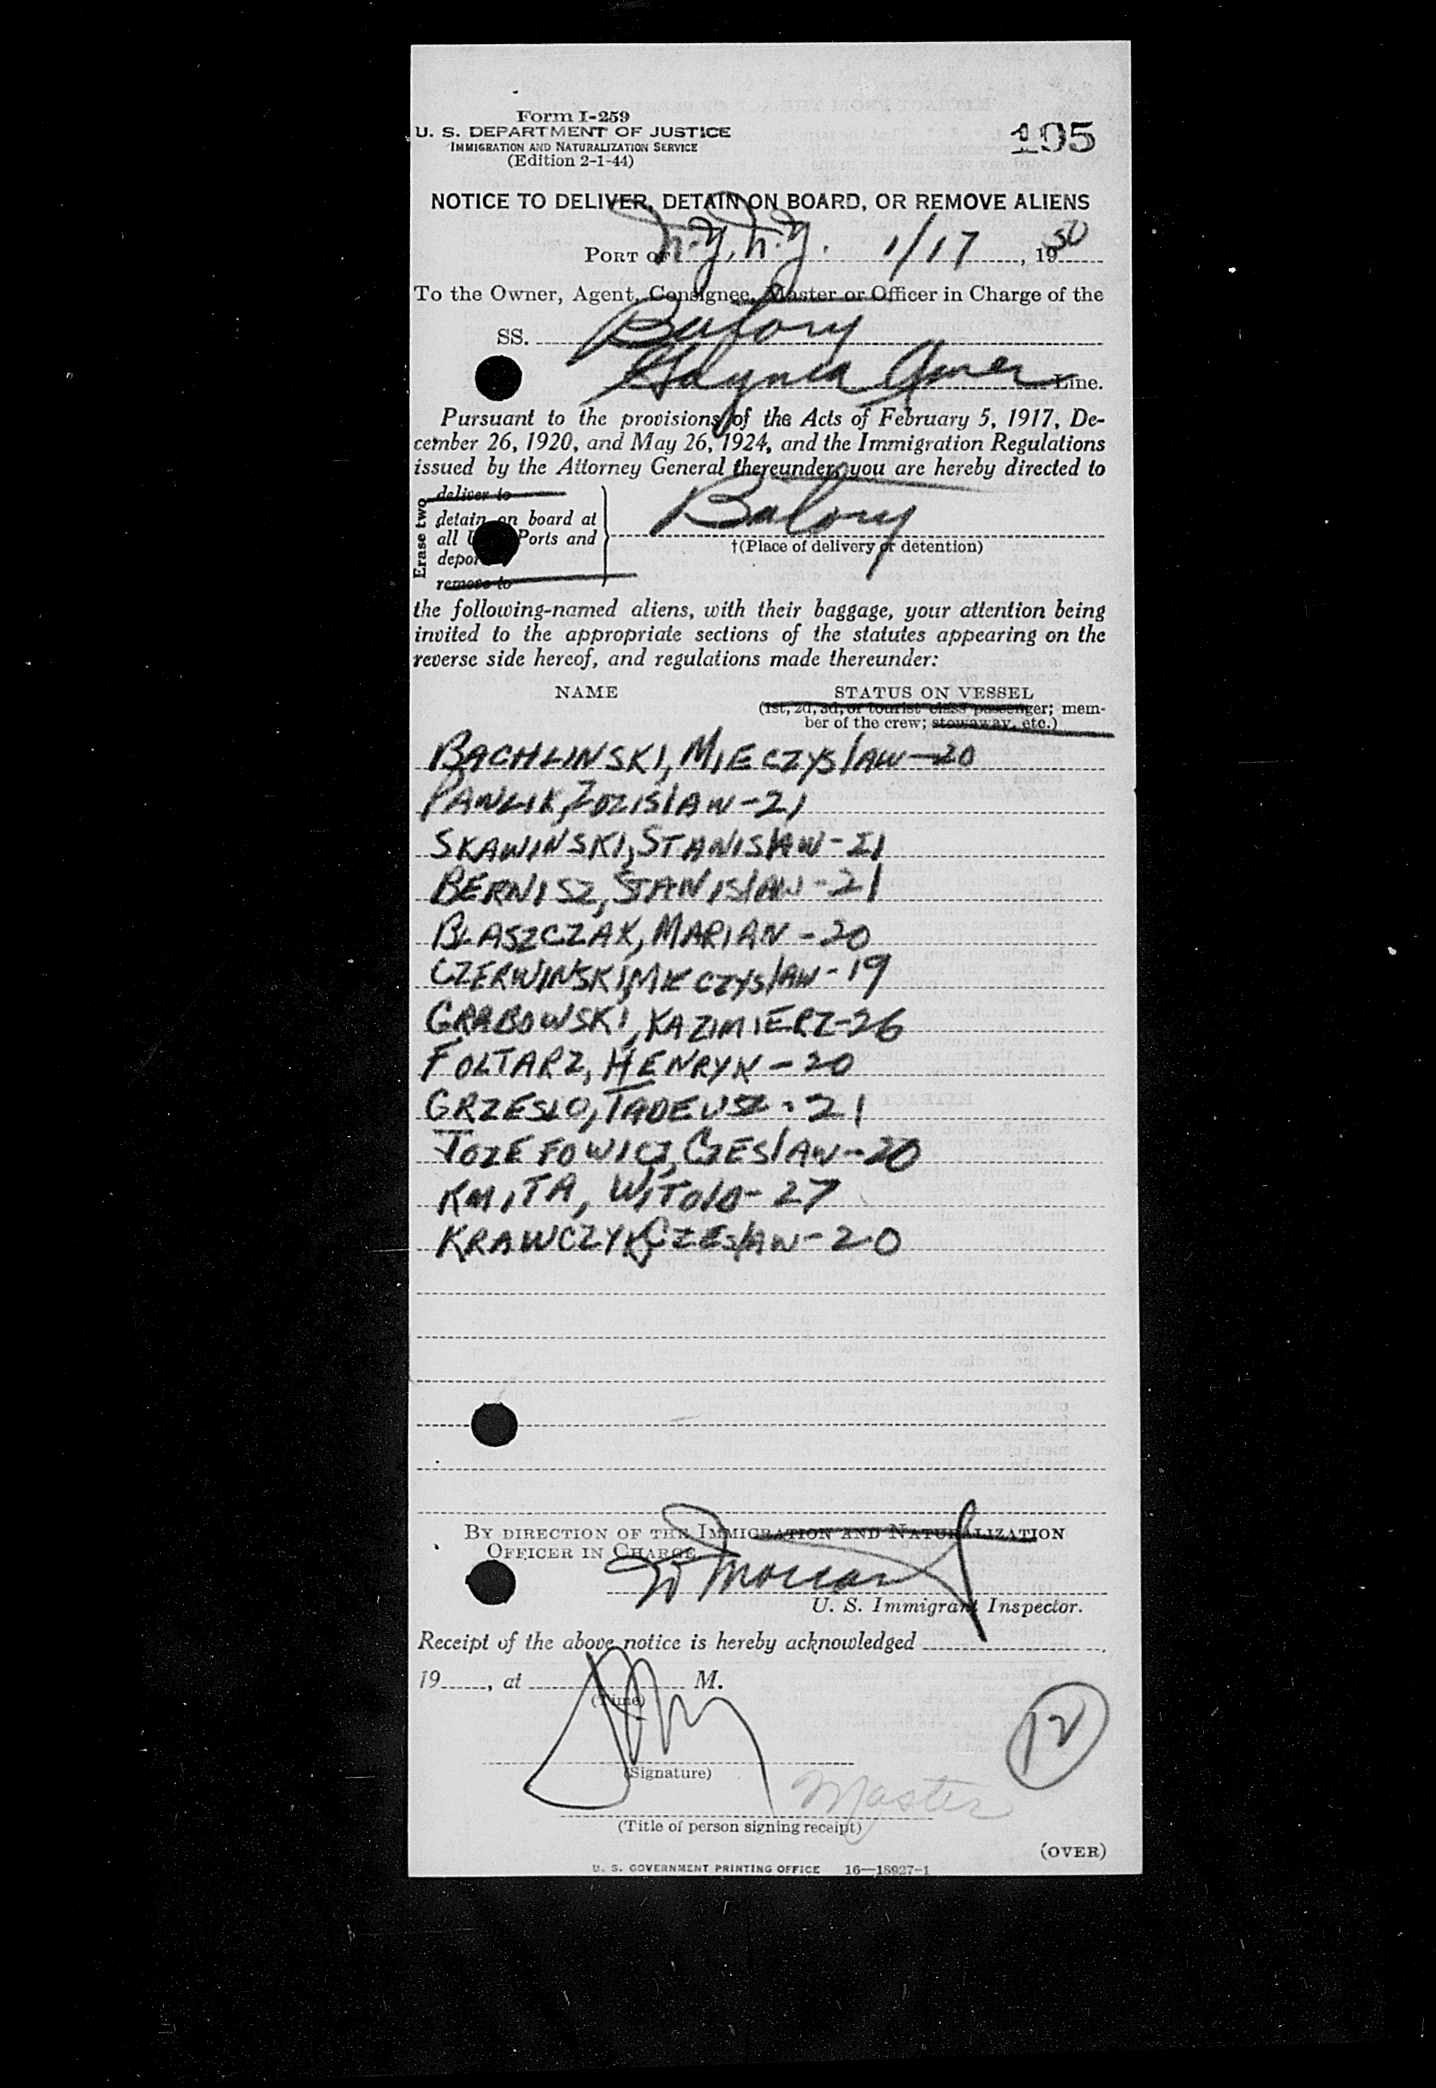 Form I-259
U. S. DEPARTMENT OF JUSTICE
IMMIGRATION AND NATURALIZATION SERVICE
(Edition 2-1-44)
195
NOTICE TO DELIVER, DETAIN ON BOARD, OR REMOVE ALIENS
PORT OF N.Y. N.Y. 1/17, 1950
To the Owner, Agent, Consignee, Master or Officer in Charge of the
SS. Batory
Gdynia Amer Line.
Pursuant to the provisions of the Acts of February 5, 1917, De-
cember 26, 1920, and May 26, 1924, and the Immigration Regulations
issued by the Attorney General thereunder, you are hereby directed to
Erase two
deliver to
detain on board at
all Ports and
depor
remove to
Batory
†(Place of delivery or detention)
the following-named aliens, with their baggage, your attention being
invited to the appropriate sections of the statutes appearing on the
reverse side hereof, and regulations made thereunder:
NAME STATUS ON VESSEL
(1st, 2d, 3d, or tourist class passenger; mem-
ber of the crew; stowaway, etc.)
BACHLINSKI, MIECZYSlAW-20
PAWLIK, ZDZISlAW-21
SKAWINSKI, STANISlAW-21
BERNISZ, STANISlAW-21
BLASZCZAK, MARIAN-20
CZERWINSKI, MIECZYSlAW-19
GRABOWSKI, KAZIMIERZ-26
FOLTARZ, HENRYK-20
GRZESLO, TADEUSZ-21
JOZEFOWICZ, CZESlAW-20
KMITA, WITOlD-27
KRAWCZYK, CZESlAW-20
BY DIRECTION OF THE IMMIGRATION AND NATURALIZATION
OFFICER IN CHARGE
U. S. Immigrant Inspector.
Receipt of the above notice is hereby acknowledged
19, at M.
(Time)
12
(Signature)
Master
(Title of person signing receipt)
(OVER)
U. S. GOVERNMENT PRINTING OFFICE 16—18927-1